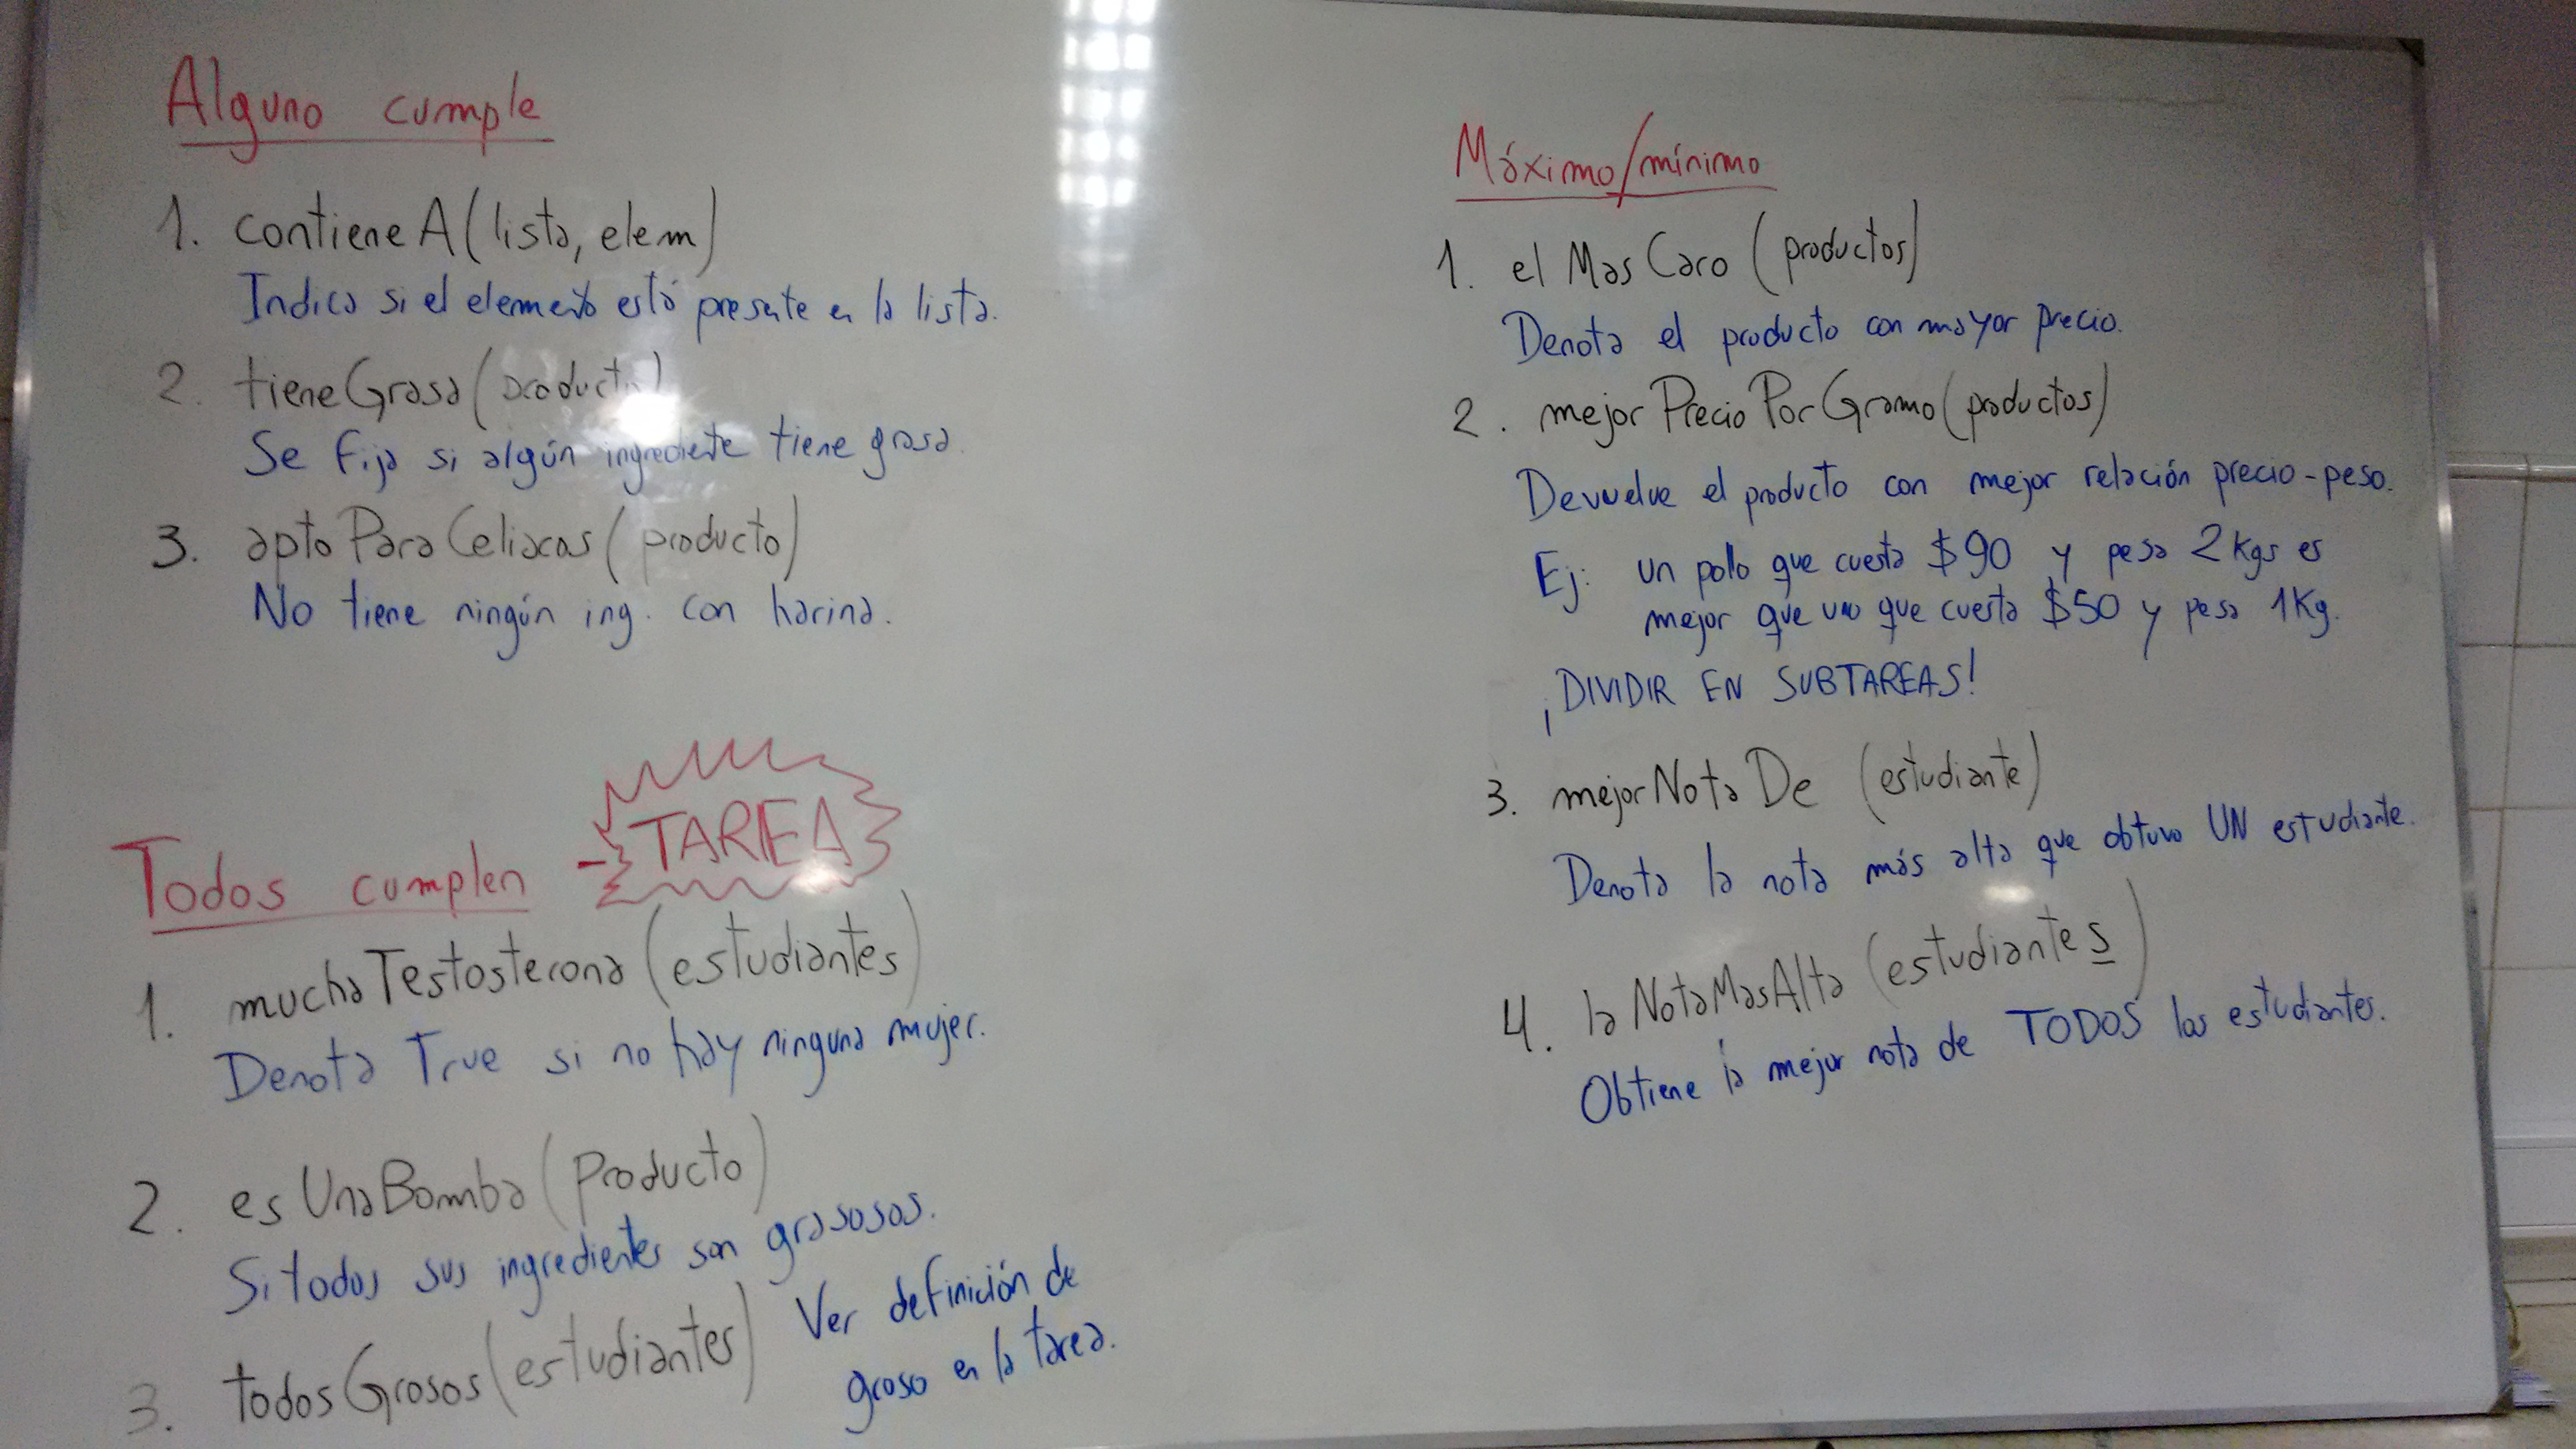 Alguno cumple
1. contieneA(lista, elem)
Indica si el elemento está presente en la lista.
2. tieneGrasa(producto)
Se fija si algún ingrediente tiene grasa.
3. aptoParaCeliacos(producto)
No tiene ningún ing. con harina.
Todos cumplen - TAREA
1. muchaTestosterona(estudiantes)
Denota True si no hay ninguna mujer.
2. esUnaBomba(producto)
Si todos sus ingredientes son grasosos.
3. todosGrosos(estudiantes)
Ver definición de
groso en la tarea.
Máximo/mínimo
1. elMasCaro(productos)
Denota el producto con mayor precio.
2. mejorPrecioPorGramo(productos)
Devuelve el producto con mejor relación precio-peso.
Ej: un pollo que cuesta $90 y pesa 2kgs es
mejor que uno que cuesta $50 y pesa 1Kg.
¡DIVIDIR EN SUBTAREAS!
3. mejorNotaDe (estudiante)
Denota la nota más alta que obtuvo UN estudiante.
4. laNotaMasAlta (estudiantes)
Obtiene la mejor nota de TODOS los estudiantes.